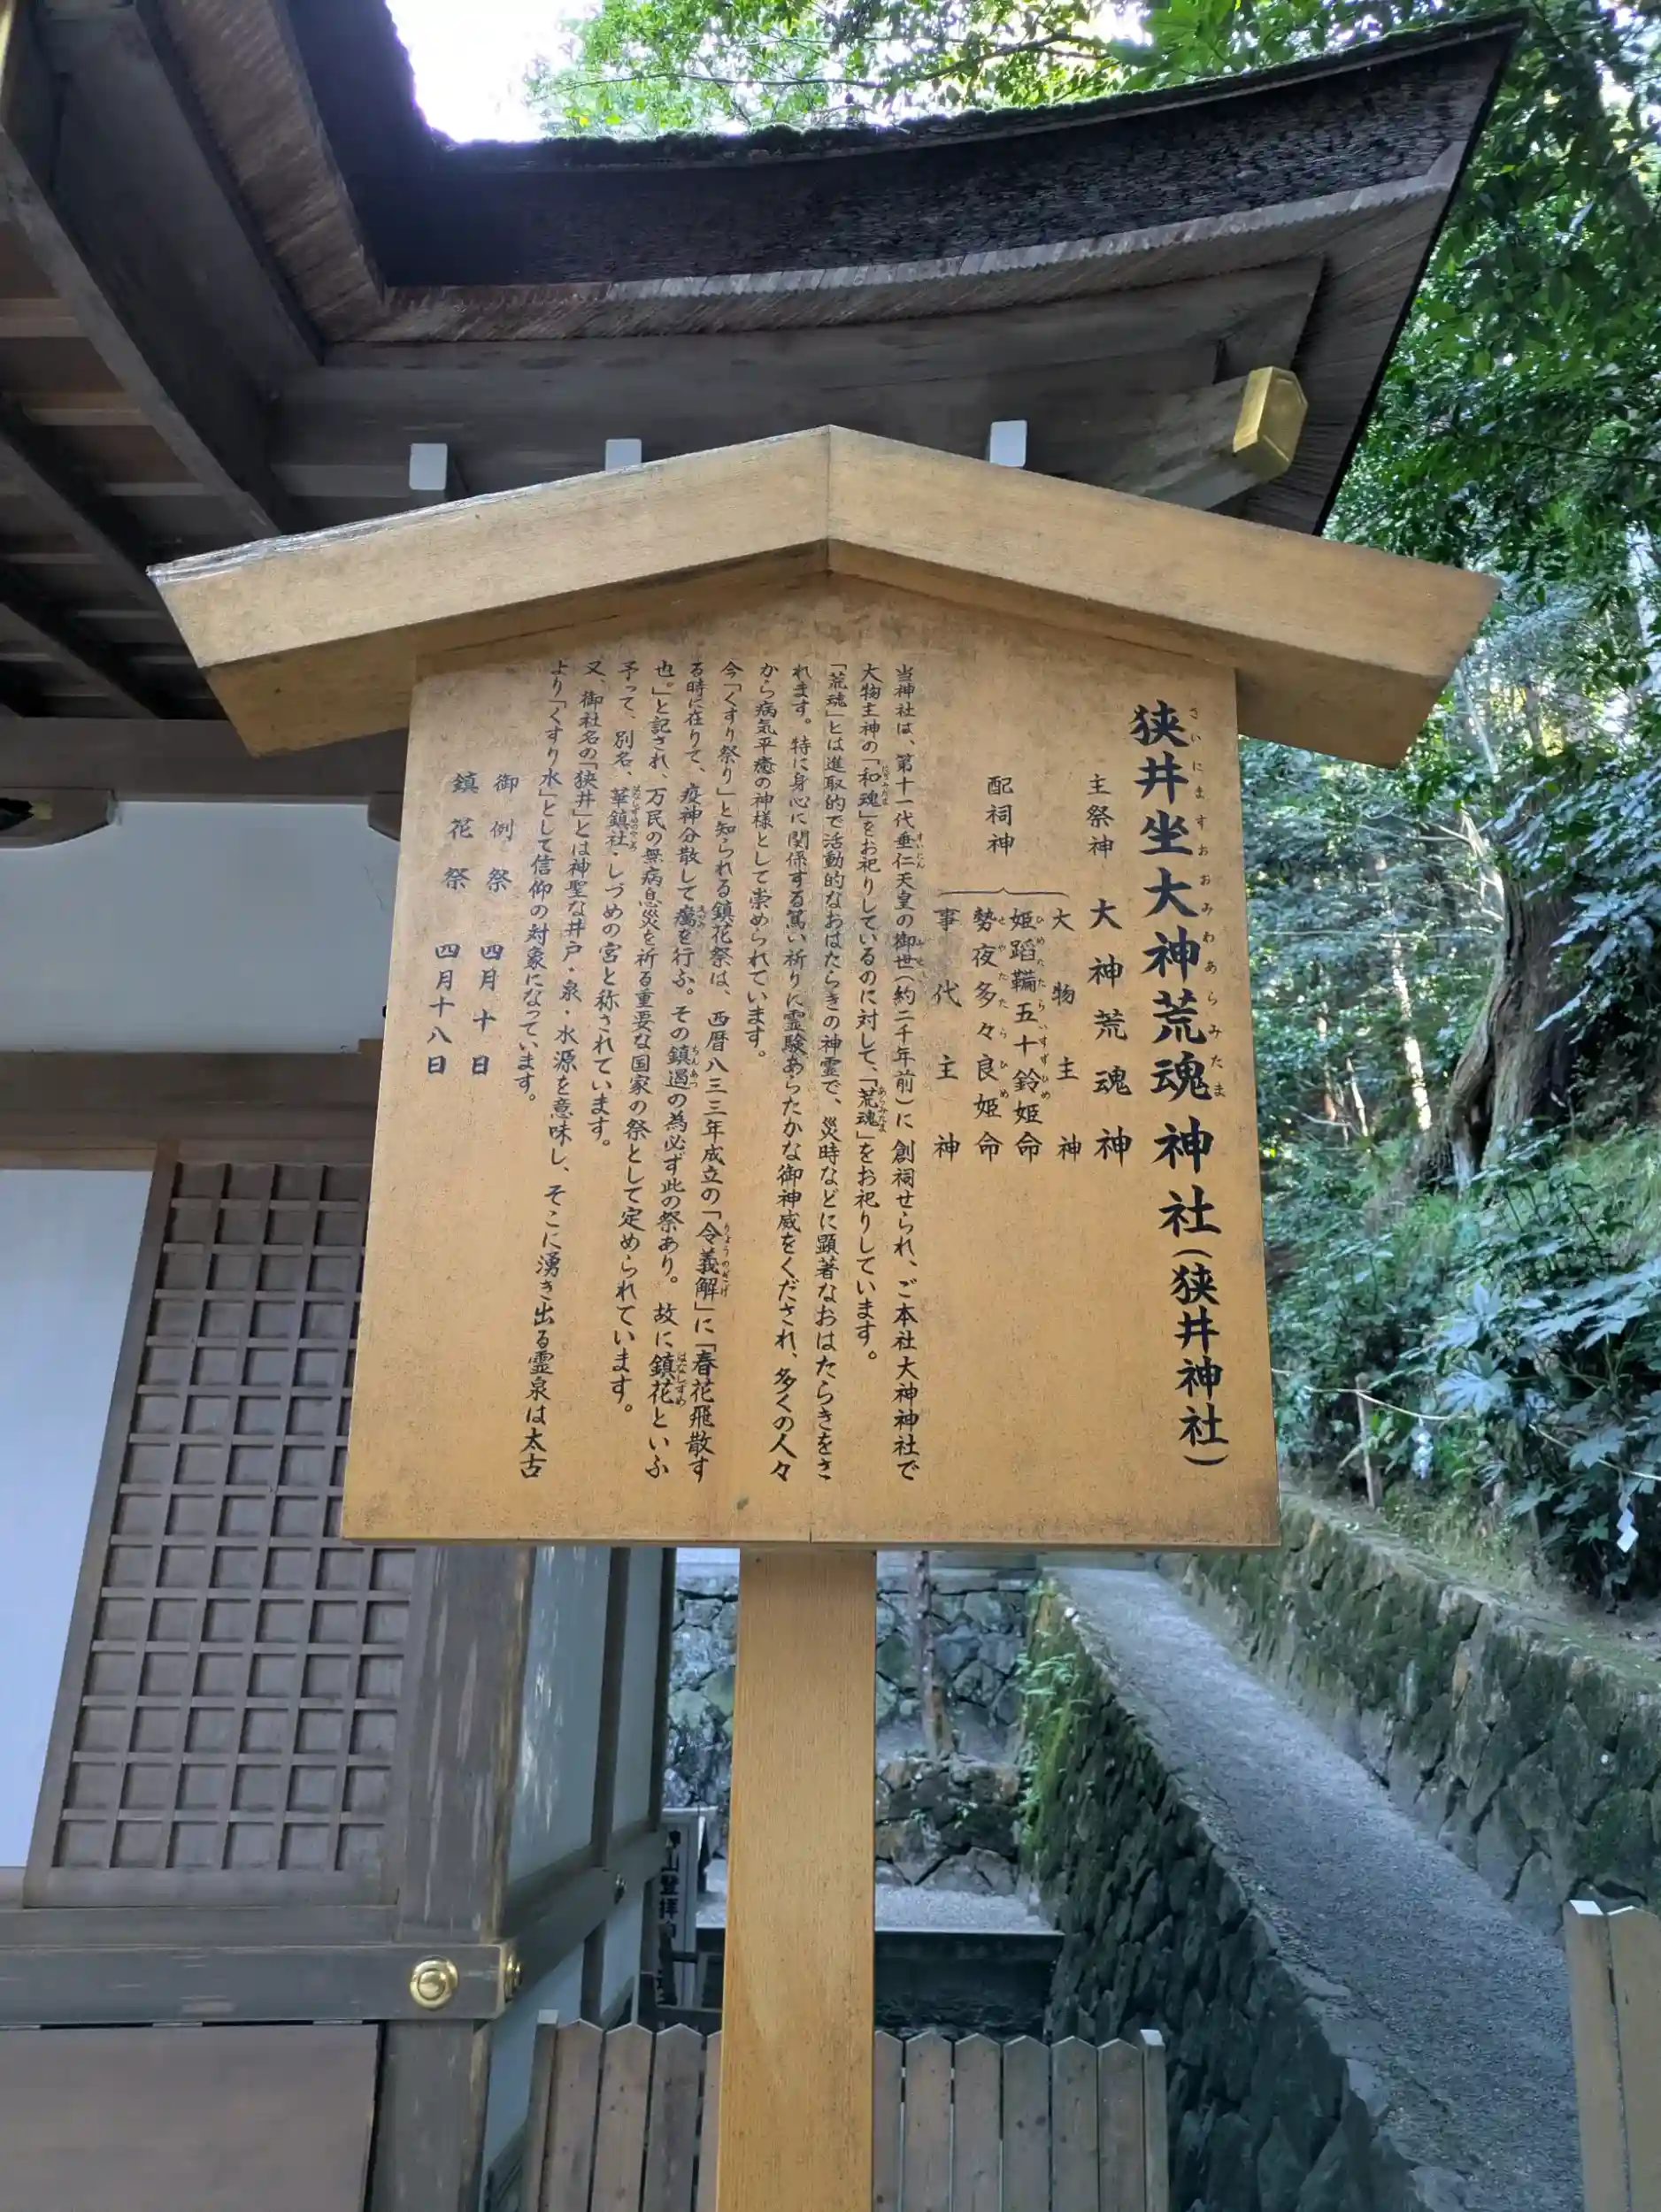 狭井坐大神荒魂神社(狭井神社)
さいにますおおみわあらみたま
主祭神 大神荒魂神
配祠神
大物主神
姫蹈鞴五十鈴姫命
ひめたたらいすずひめ
勢夜多々良姫命
せやたたらひめ
事代主神
当神社は、第十一代垂仁天皇の御世(約二千年前)に創祠せられ、ご本社大神神社で
すいにん
大物主神の「和魂」をお祀りしているのに対して、「荒魂」をお祀りしています。
にぎみたま
あらみたま
「荒魂」とは進取的で活動的なおはたらきの神霊で、災時などに顕著なおはたらきをさ
れます。特に身心に関係する篤い祈りに霊験あらたかな御神威をくだされ、多くの人々
から病気平癒の神様として崇められています。
今「くすり祭り」と知られる鎮花祭は、西暦八三三年成立の「令義解」に「春花飛散す
りょうのぎげ
る時に在りて、疫神分散して癘を行ふ。その鎮遏の為必ず此の祭あり。故に鎮花といふ
ちんあつ
はなしずめ
也。」と記され、万民の無病息災を祈る重要な国家の祭として定められています。
予って、別名、華鎮社・しづめの宮と称されています。
又、御社名の「狭井」とは神聖な井戸・泉・水源を意味し、そこに湧き出る霊泉は太古
より「くすり水」として信仰の対象になっています。
御例祭 四月十日
鎮花祭 四月十八日
山登拝